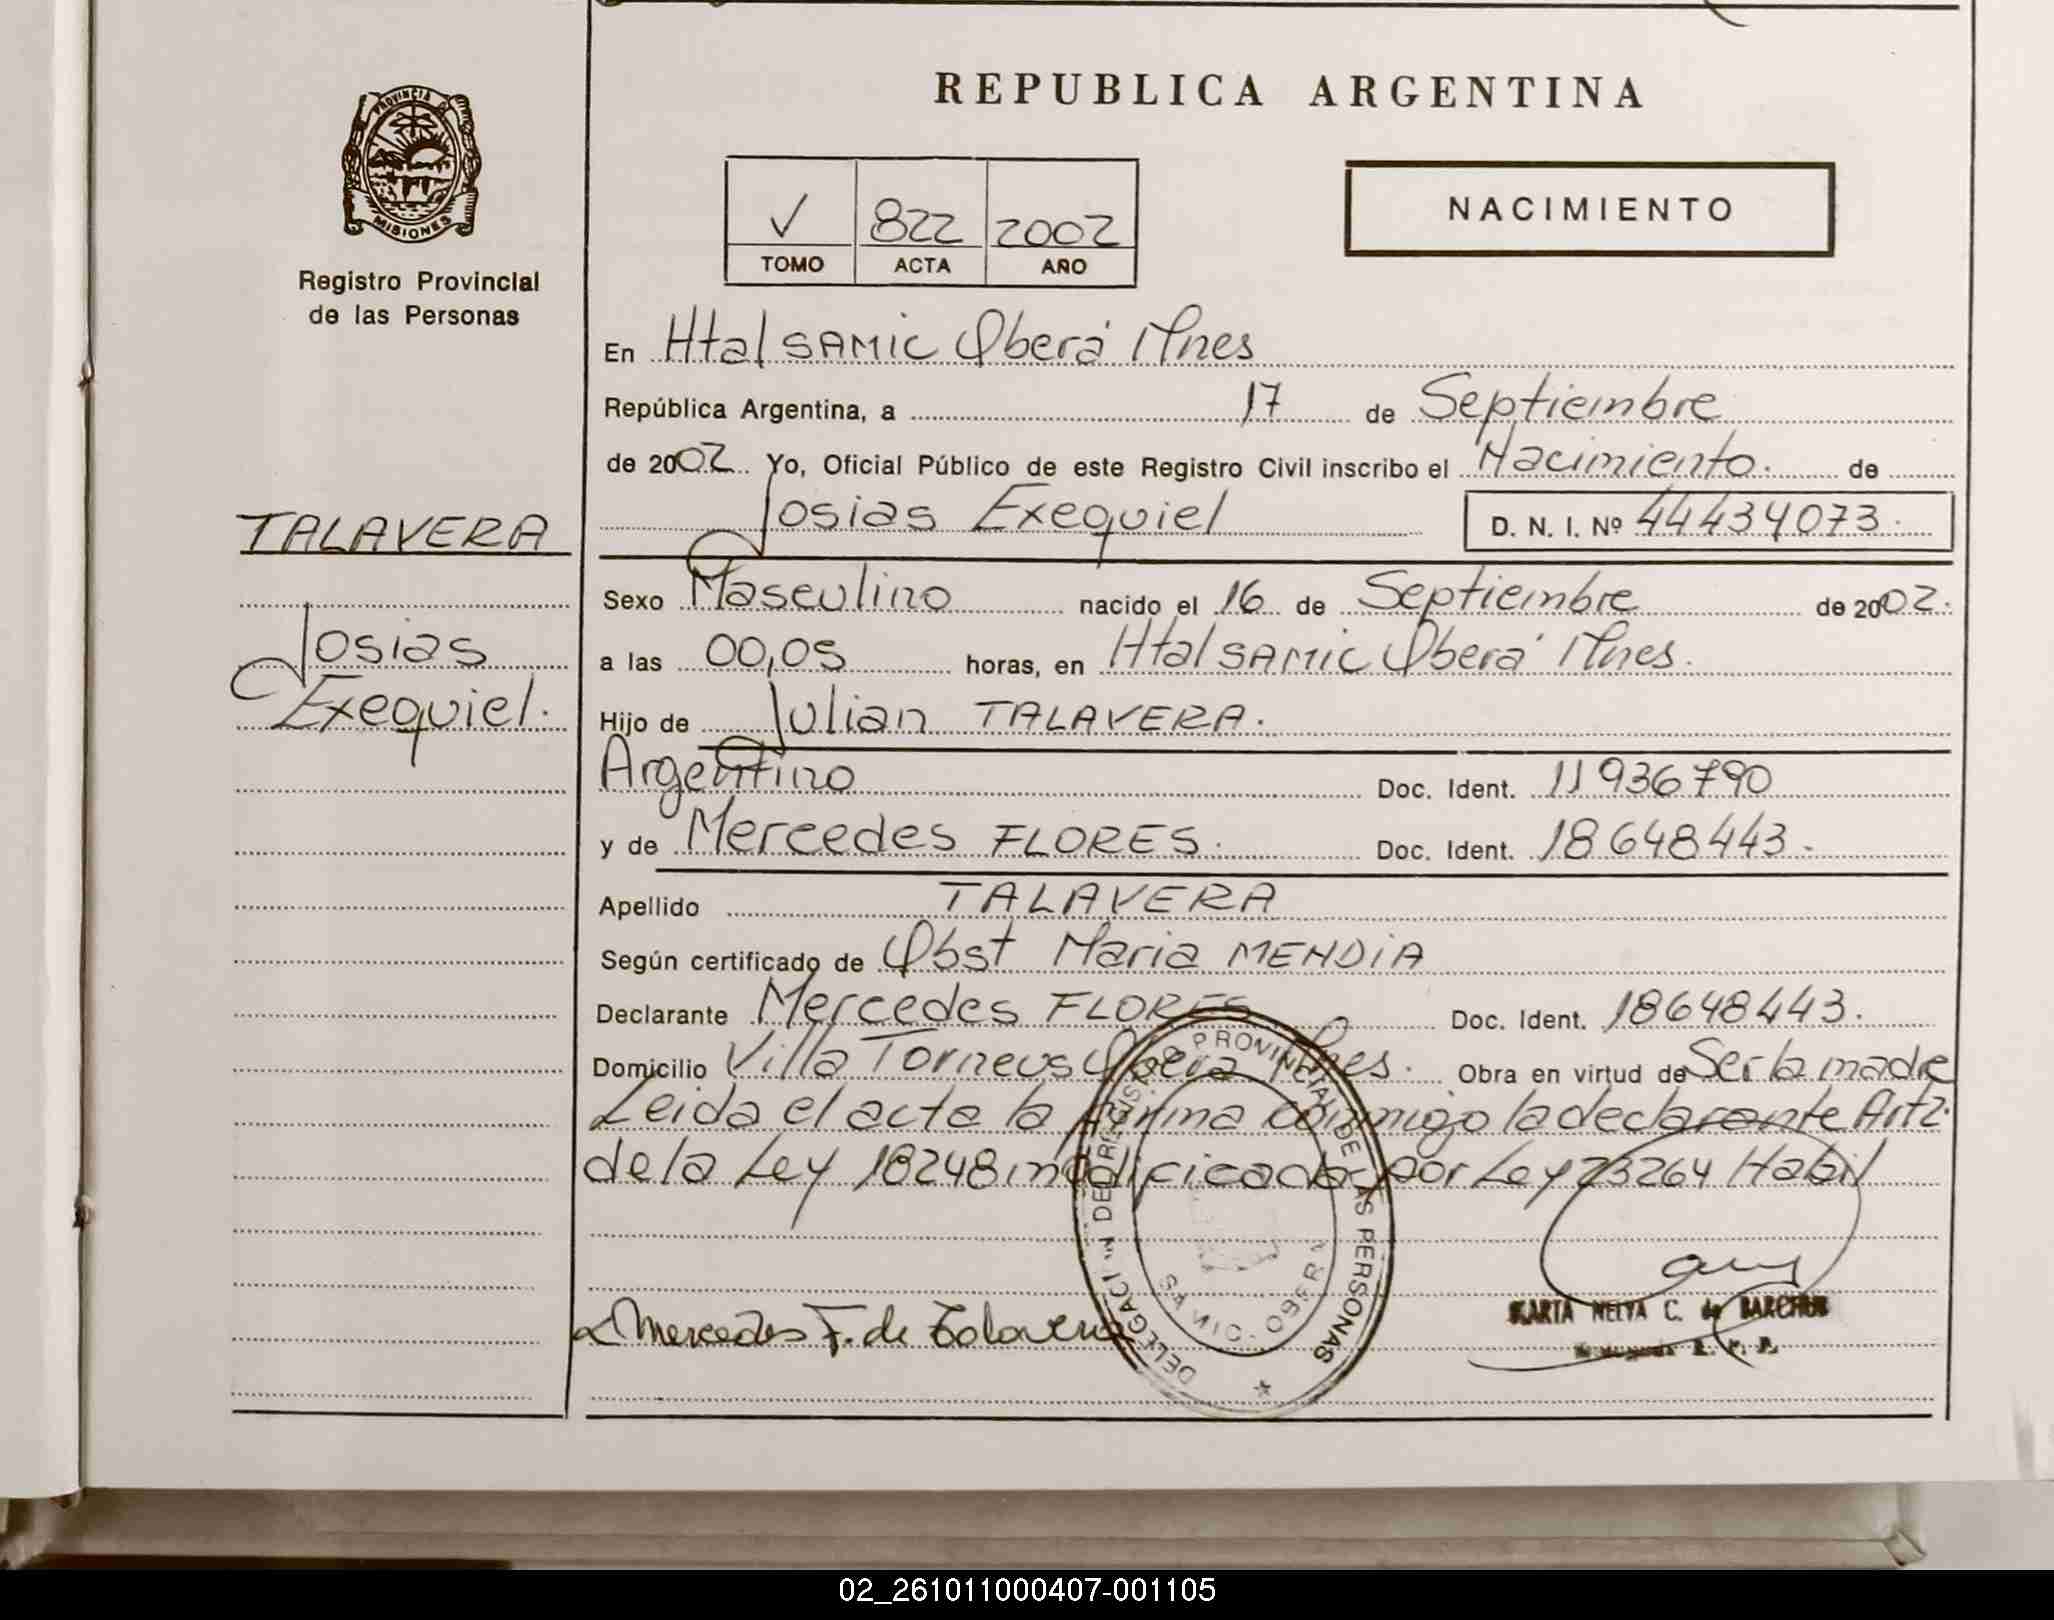 REPUBLICA ARGENTINA
PROVINCIA DE
MISIONES
Registro Provincial
de las Personas
V 822 2002
TOMO ACTA AÑO
NACIMIENTO
En Htal SAMIC Oberá Mnes
República Argentina, a 17 de Septiembre
de 2002 Yo, Oficial Público de este Registro Civil inscribo el Nacimiento. de
Josias Exequiel D. N. I. Nº 44434073.
TALAVERA
Josias
Exequiel.
Sexo Masculino nacido el 16 de Septiembre de 2002.
a las 00,05 horas, en Htal SAMIC Oberá Mnes.
Hijo de Julian TALAVERA.
Argentino Doc. Ident. 11936790
y de Mercedes FLORES. Doc. Ident. 18648443.
Apellido TALAVERA
Según certificado de Obst Maria MENDiA
Declarante Mercedes FLORES Doc. Ident. 18648443.
Domicilio Villa Torneus Oberá Mnes. Obra en virtud de Ser la madre
Leida el acta la firma conmigo la declarante Art 2.
de la Ley 18248 modificada por Ley 23264 Habil
Mercedes F. de Talavera
DELEGACI N DEL REGISTRO PROVINCIAL DE LAS PERSONAS
SAMIC - OBERA
MARTA NELVA C. de
R. P. P.
02_261011000407-001105